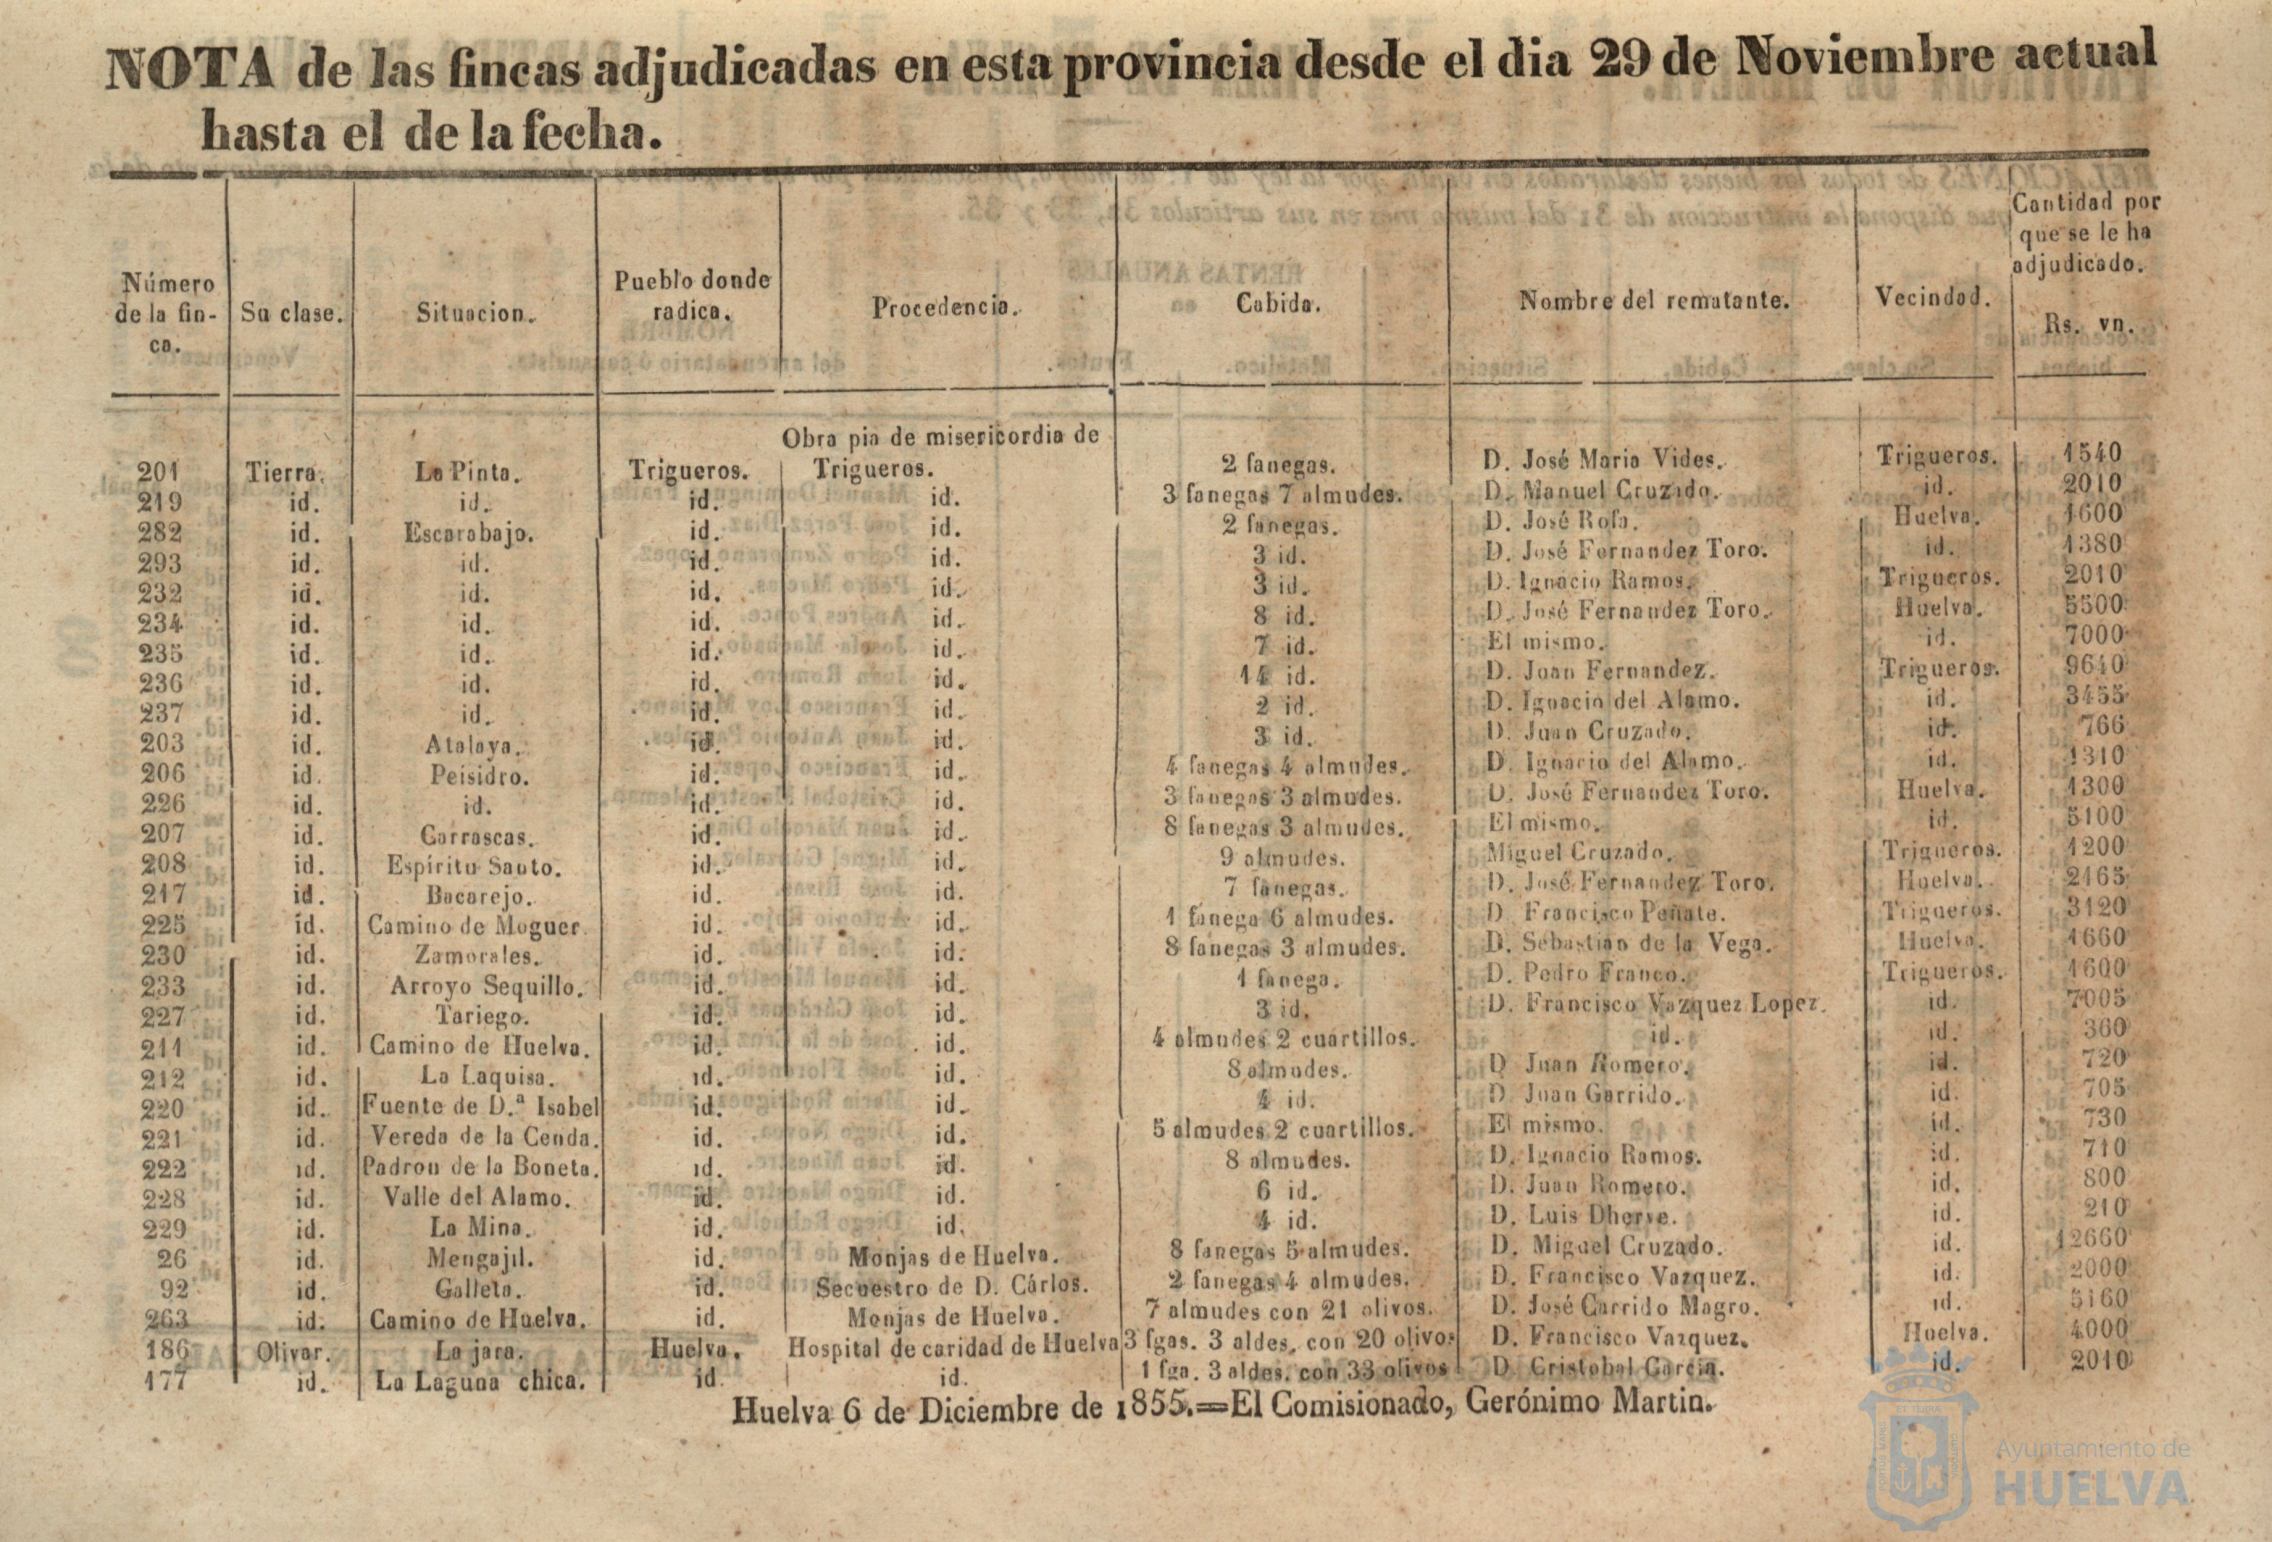 NOTA de las fincas adjudicadas en esta provincia desde el dia 29 de Noviembre actual
hasta el de la fecha.
Número de la finca. Su clase. Situacion. Pueblo donde radica. Procedencia. Cabida. Nombre del rematante. Vecindad. Cantidad por que se le ha adjudicado. Rs. vn.
Obra pia de misericordia de
201 Tierra. La Pinta. Trigueros. Trigueros. 2 fanegas. D. José Maria Vides. Trigueros. 1540
219 id. id. id. id. 3 fanegas 7 almudes. D. Manuel Cruzado. id. 2010
282 id. Escarabajo. id. id. 2 fanegas. D. José Rofa. Huelva. 1600
293 id. id. id. id. 3 id. D. José Fernandez Toro. id. 1380
232 id. id. id. id. 3 id. D. Ignacio Ramos. Trigueros. 2010
234 id. id. id. id. 8 id. D. José Fernandez Toro. Huelva. 5500
235 id. id. id. id. 7 id. El mismo. id. 7000
236 id. id. id. id. 14 id. D. Juan Fernandez. Trigueros. 9640
237 id. id. id. id. 2 id. D. Ignacio del Alamo. id. 3455
203 id. Atalaya. id. id. 3 id. D. Juan Cruzado. id. 766
206 id. Peisidro. id. id. 4 fanegas 4 almudes. D. Ignacio del Alamo. id. 1310
226 id. id. id. id. 3 fanegas 3 almudes. D. José Fernandez Toro. Huelva. 1300
207 id. Carrascas. id. id. 8 fanegas 3 almudes. El mismo. id. 5100
208 id. Espíritu Santo. id. id. 9 almudes. Miguel Cruzado. Trigueros. 1200
217 id. Bacarejo. id. id. 7 fanegas. D. José Fernandez Toro. Huelva. 2165
225 id. Camino de Moguer. id. id. 1 fanega 6 almudes. D. Francisco Peñate. Trigueros. 3120
230 id. Zamorales. id. id. 8 fanegas 3 almudes. D. Sebastian de la Vega. Huelva. 1660
233 id. Arroyo Sequillo. id. id. 1 fanega. D. Pedro Franco. Trigueros. 1600
227 id. Tariego. id. id. 3 id. D. Francisco Vazquez Lopez. id. 7005
211 id. Camino de Huelva. id. id. 4 almudes 2 cuartillos. id. id. 360
212 id. La Laquisa. id. id. 8 almudes. D Juan Romero. id. 720
220 id. Fuente de D.ª Isabel id. id. 4 id. D Juan Garrido. id. 705
221 id. Vereda de la Cenda. id. id. 5 almudes 2 cuartillos. El mismo. id. 730
222 id. Padron de la Boneta. id. id. 8 almudes. D. Ignacio Ramos. id. 710
228 id. Valle del Alamo. id. id. 6 id. D. Juan Romero. id. 800
229 id. La Mina. id. id. 4 id. D. Luis Dherve. id. 210
26 id. Mengajil. id. Monjas de Huelva. 8 fanegas 5 almudes. D. Miguel Cruzado. id. 12660
92 id. Galleta. id. Secuestro de D. Cárlos. 2 fanegas 4 almudes. D. Francisco Vazquez. id. 2000
263 id. Camino de Huelva. id. Monjas de Huelva. 7 almudes con 21 olivos. D. José Garrido Magro. id. 5160
186 Olivar. La jara. Huelva. Hospital de caridad de Huelva 3 fgas. 3 aldes. con 20 olivos D. Francisco Vazquez. Huelva. 4000
177 id. La Laguna chica. id. id. 1 fga. 3 aldes. con 33 olivos D. Cristobal Garcia. id. 2010
Huelva 6 de Diciembre de 1855.=El Comisionado, Gerónimo Martin.
Ayuntamiento de
HUELVA